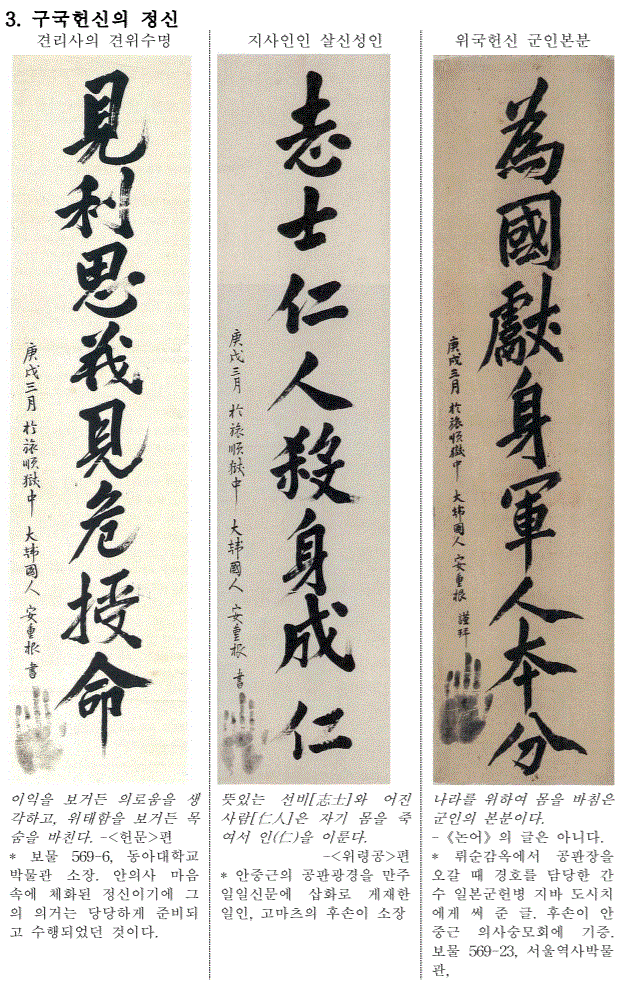 3. 구국헌신의 정신
견리사의 견위수명
見利思義見危授命
庚戌三月 於旅順獄中 大韓國人 安重根 書
이익을 보거든 의로움을 생
각하고, 위태함을 보거든 목
숨을 바친다. -<헌문>편
* 보물 569-6, 동아대학교
박물관 소장. 안의사 마음
속에 체화된 정신이기에 그
의 의거는 당당하게 준비되
고 수행되었던 것이다.
지사인인 살신성인
志士仁人殺身成仁
庚戌三月 於旅順獄中 大韓國人 安重根 書
뜻있는 선비[志士]와 어진
사람[仁人]은 자기 몸을 죽
여서 인(仁)을 이룬다.
-<위령공>편
* 안중근의 공관광경을 만주
일일신문에 삽화로 게재한
일인, 고마츠의 후손이 소장
위국헌신 군인본분
為國獻身軍人本分
庚戌三月 於旅順獄中 大韓國人 安重根 謹拜
나라를 위하여 몸을 바침은
군인의 본분이다.
-《논어》의 글은 아니다.
* 뤼순감옥에서 공관장을
오갈 때 경호를 담당한 간
수 일본군헌병 지바 도시치
에게 써 준 글. 후손이 안
중근 의사숭모회에 기증.
보물 569-23, 서울역사박물
관,